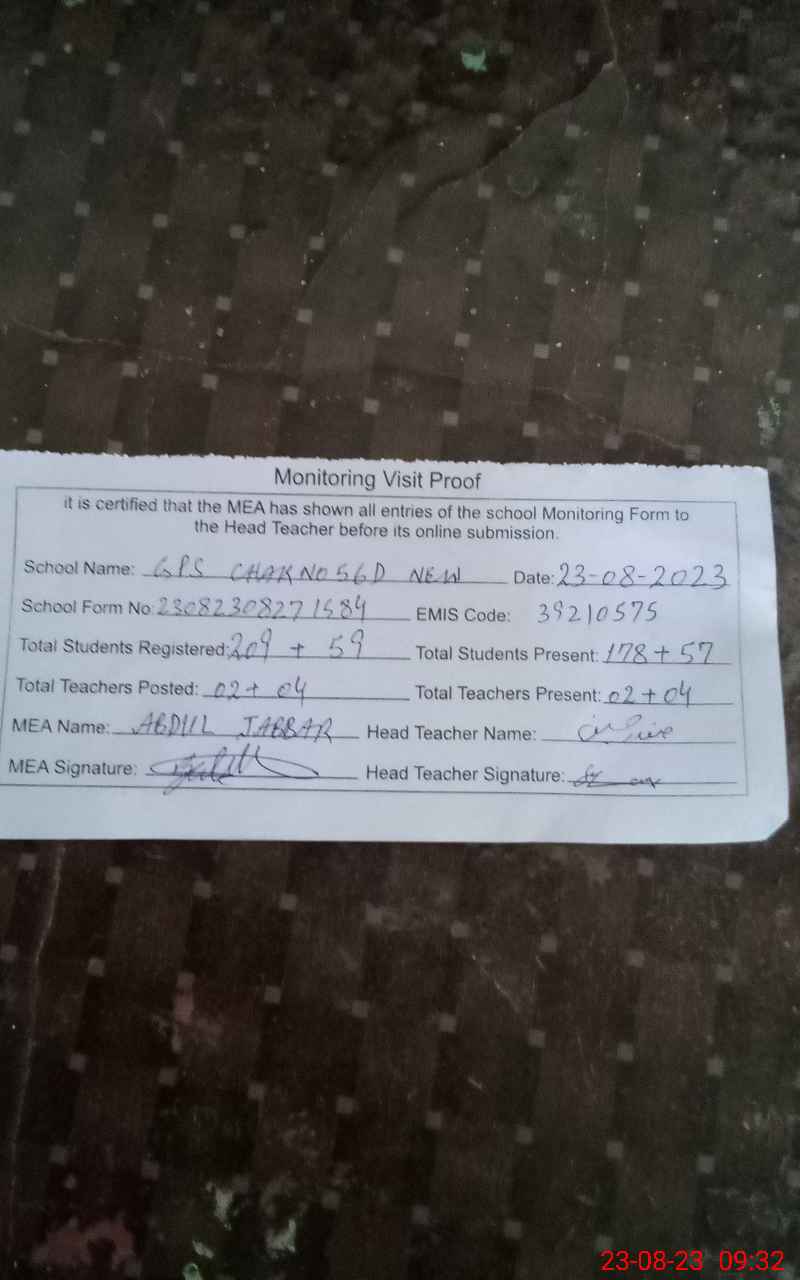 Monitoring Visit Proof
it is certified that the MEA has shown all entries of the school Monitoring Form to
the Head Teacher before its online submission.
School Name: GPS CHAK NO 56D NEW Date: 23-08-2023
School Form No: 23082308271584 EMIS Code: 39210575
Total Students Registered: 209 + 59 Total Students Present: 178 + 57
Total Teachers Posted: 02 + 04 Total Teachers Present: 02 + 04
MEA Name: ABDUL JABBAR Head Teacher Name:
MEA Signature: Head Teacher Signature:
23-08-23 09:32